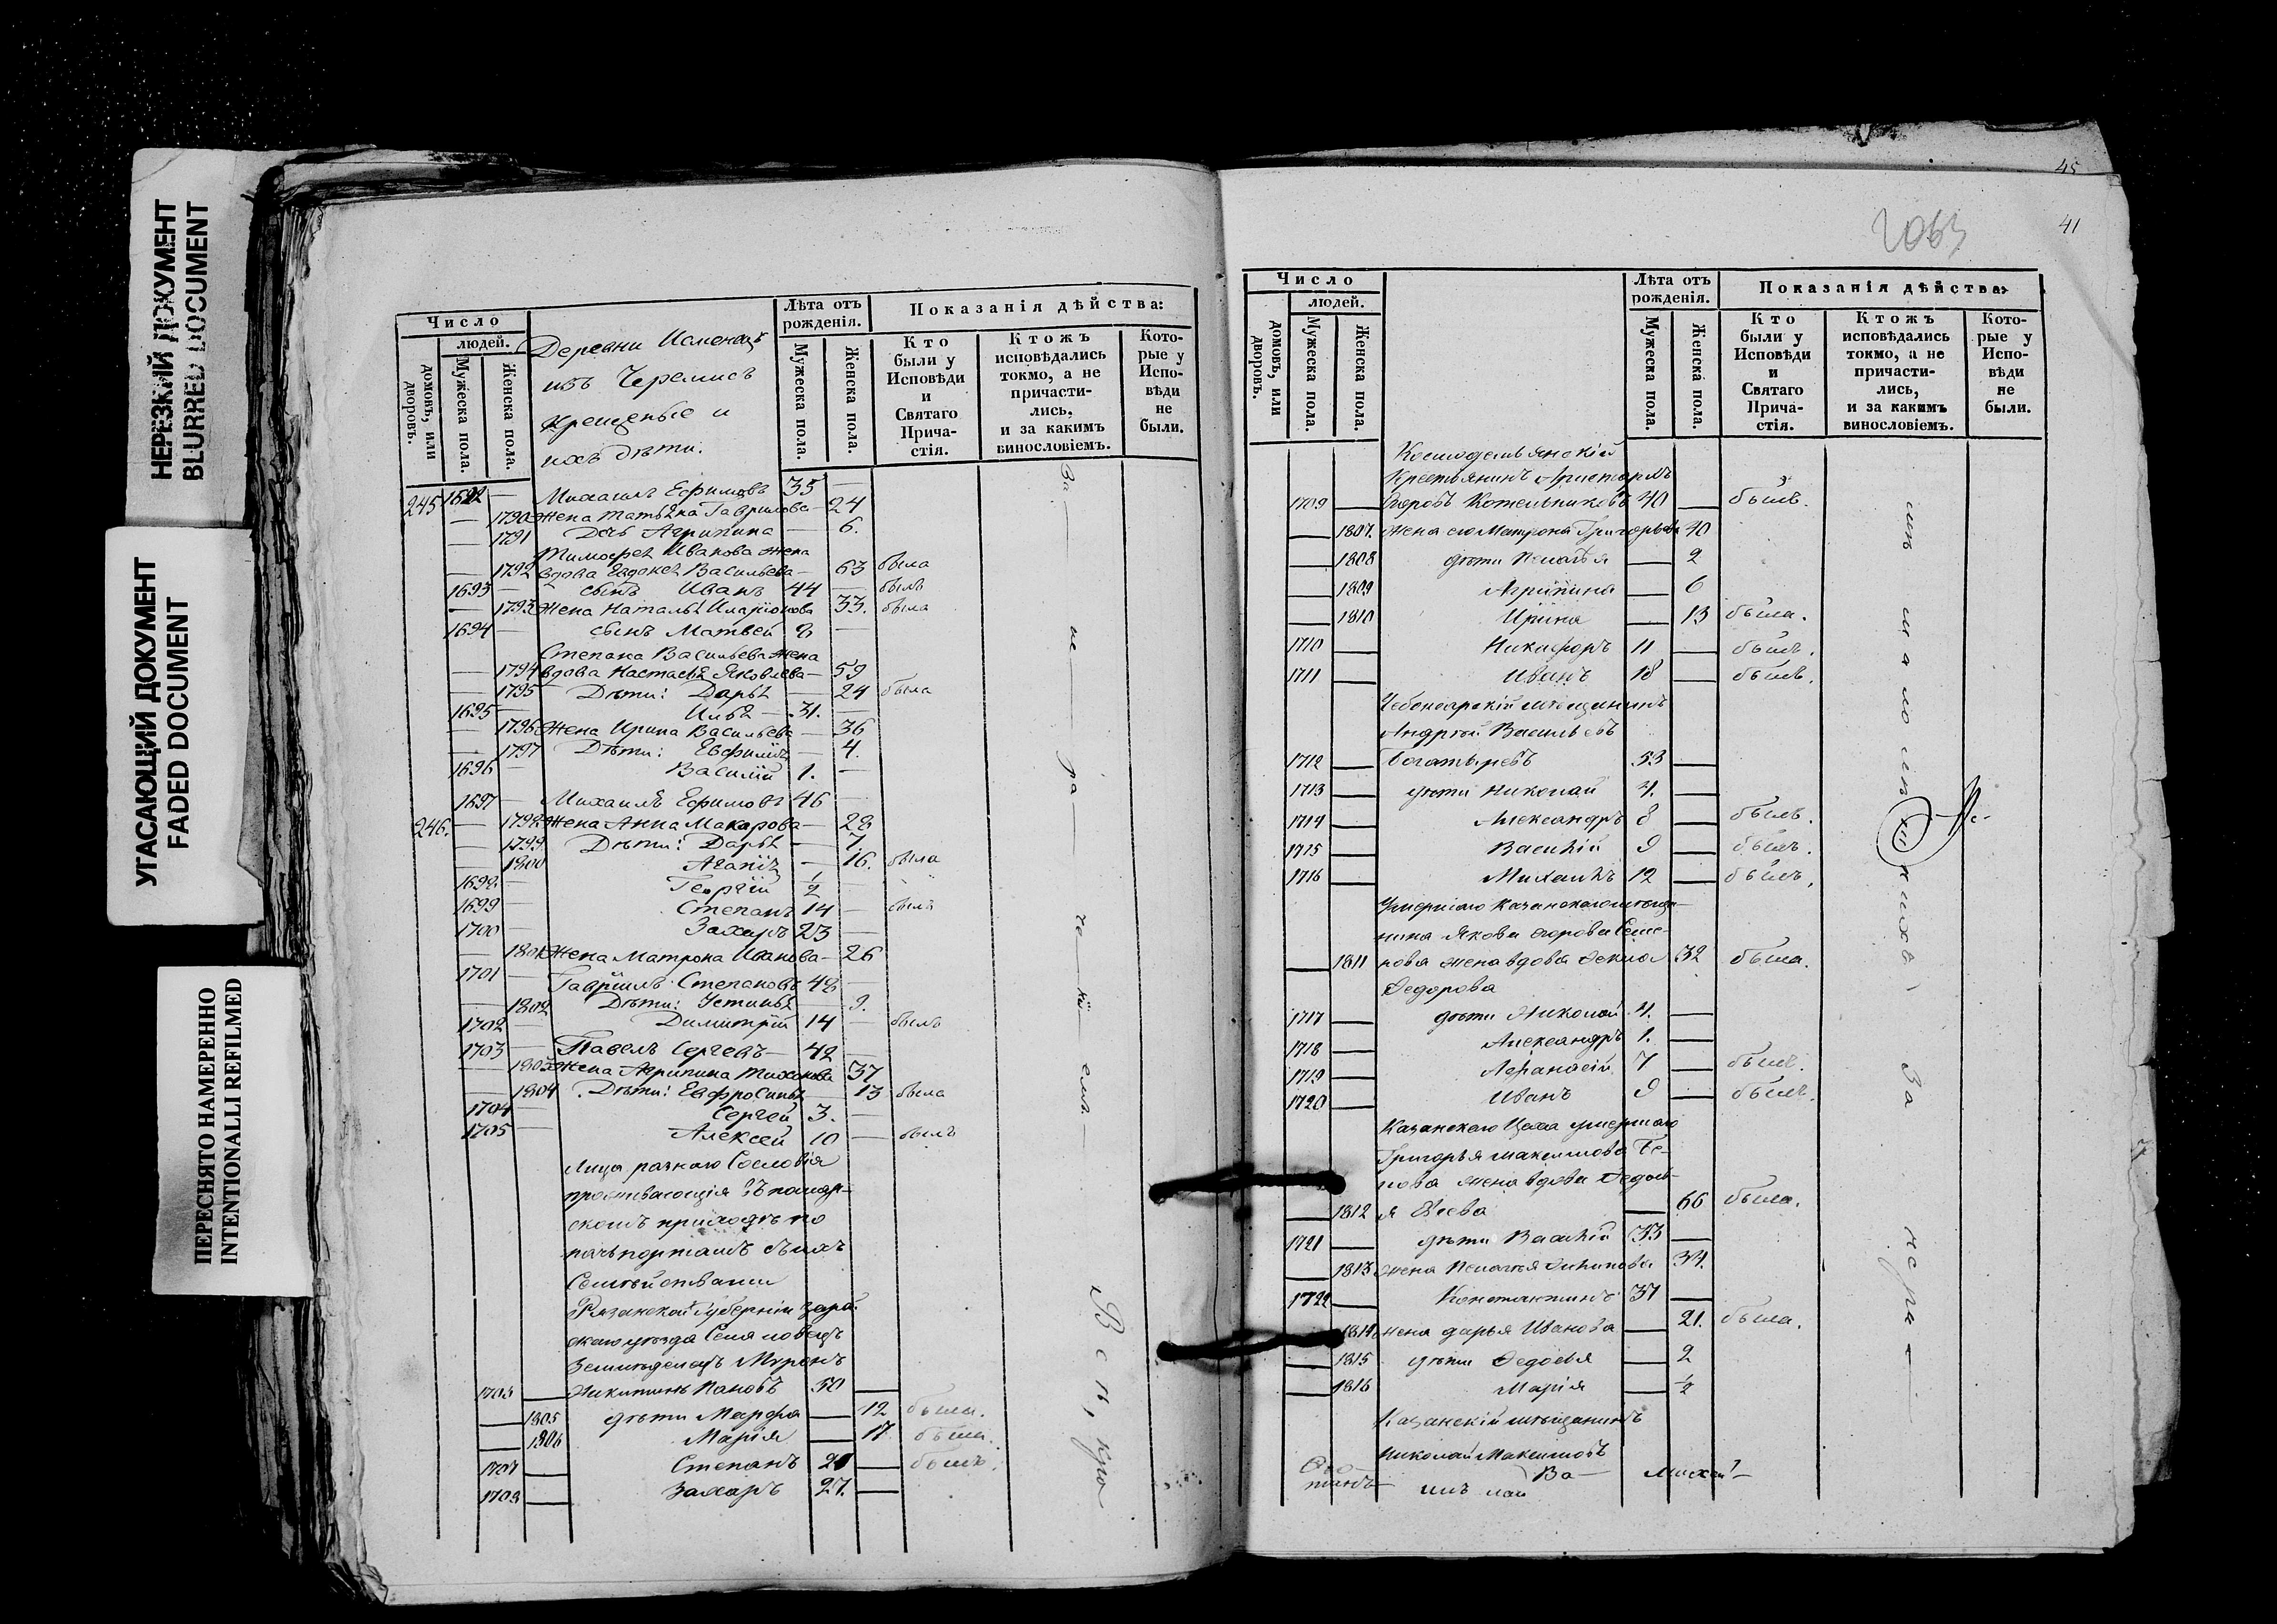 НЕРЕЗКИЙ ДОКУМЕНТ
BLURRED DOCUMENT
УГАСАЮЩИЙ ДОКУМЕНТ
FADED DOCUMENT
ПЕРЕСНЯТО НАМЕРЕННО
INTENTIONALLI REFILMED
Число
людей.
домовъ, или дворовъ.
Мужеска пола.
Женска пола.
Деревни
изъ Черемисъ
крещеные и
ихъ дѣти.
Лѣта отъ рожденія.
Мужеска пола.
Женска пола.
Показанія дѣйства:
Кто были у Исповѣди и Святаго Прича-стія.
Ктожъ исповѣдались токмо, а не причасти-лись, и за какимъ винословіемъ.
Кото-рые у Испо-вѣди не были.
245 1692 — Михаилъ Ефимовъ 35 —
— 1790 Жена Татьяна Гаврилова — 24
— 1791 Дочь Агрипина — 6.
Тимофея Иванова жена
— 1792 вдова Евдокея Васильева — 63 была
1693 — сынъ Иванъ 44 — былъ
— 1793 Жена Наталья Иларіонова 33. была
1694 — сынъ Матвей 8 —
Степана Васильева жена
— 1794 вдова Настасья Яковлева — 59
— 1795 Дѣти: Дарья — 24 была
1695 — Илья — 31. —
— 1796 Жена Ирина Васильева — 36
— 1797 Дѣти: Евфимія — 4.
1696 — Василій 1. —
1697 — Михаилъ Ефимовъ 46 —
246. — 1798 Жена Анна Макарова — 28
— 1799 Дѣти: Дарья — 7
1800 Агапія — 16. была
1698 — Георгій 1/2 —
1699 — Степанъ 14 — былъ
1700 — Захаръ 23 —
— 1801 Жена Матрона Иванова — 26
1701 — Гавріилъ Степановъ 48 —
— 1802 Дѣти: Устинья — 9.
1702 — Димитрій 14 — былъ
1703 — Павелъ Сергеевъ — 42 —
— 1803 Жена Агрипина Тихонова 37
— 1804 Дѣти: Евфросинья — 13 была
1704 — Сергей 3. —
1705 — Алексей 10 — былъ
Лица разнаго Сословія
проживающія въ
скомъ приходѣ по
пачьпортамъ съ ихъ
Семѣйствами
Рязанской Губерніи Зарай
скаго уѣзда Села
Миронъ
1706 — Никитинъ Пановъ 50 —
— 1805 дѣти Марфа — 12 была.
— 1806 Марія — 17 была.
1707 — Степанъ 20 — былъ.
1708 — Захаръ 27. —
За не ра че ніемъ
Вен, кро
45
41
2063
Число
людей.
домовъ, или дворовъ.
Мужеска пола.
Женска пола.
Лѣта отъ рожденія.
Мужеска пола.
Женска пола.
Показанія дѣйства:
Кто были у Исповѣди и Святаго Прича-стія.
Ктожъ исповѣдались токмо, а не причасти-лись, и за какимъ винословіемъ.
Кото-рые у Испо-вѣди не были.
Космодемьянскій
Крестьянинъ
1709 — Котельниковъ 40 — былъ.
— 1807. жена его Матрона Григорьева 40
— 1808 дѣти Пелагѣя — 2
— 1809 Агрипина — 6
— 1810 Ирина — 13 была.
1710 — Никифоръ 11 — былъ.
1711 — Иванъ 18 — былъ.
Чебоксарскій мѣщанинъ
Андрѣй Васильевъ
1712 — Богатыревъ 53 —
1713 — дѣти Николай 4. —
1714 — Александръ 8 — былъ.
1715 — Василій 9 — былъ.
1716 — Михаилъ 12 — былъ.
Умершаго Казанскаго мѣща-
нина Якова Егорова Семе-
— 1811 нова жена вдова Фекла 32 была.
Федорова
1717 — дѣти Николай 4. —
1718 — Александръ 1. —
1719 — Афанасій 7 — былъ.
1720 — Иванъ 9 — былъ.
Казанскаго Цеха умершаго
Григорья Максимова Бе-
лова жена вдова Федось-
— 1812 я Евсева — 66 была.
1721 — дѣти Василій 33 —
— 1813 жена Пелагѣя 34.
1722 — Константинъ 37 —
1814 жена дарья Иванова — 21. была.
— 1815 дѣти Федосья — 2
— 1816 Марія — 1/2
Казанскій мѣщанинъ
Николай Максимовъ
За нера